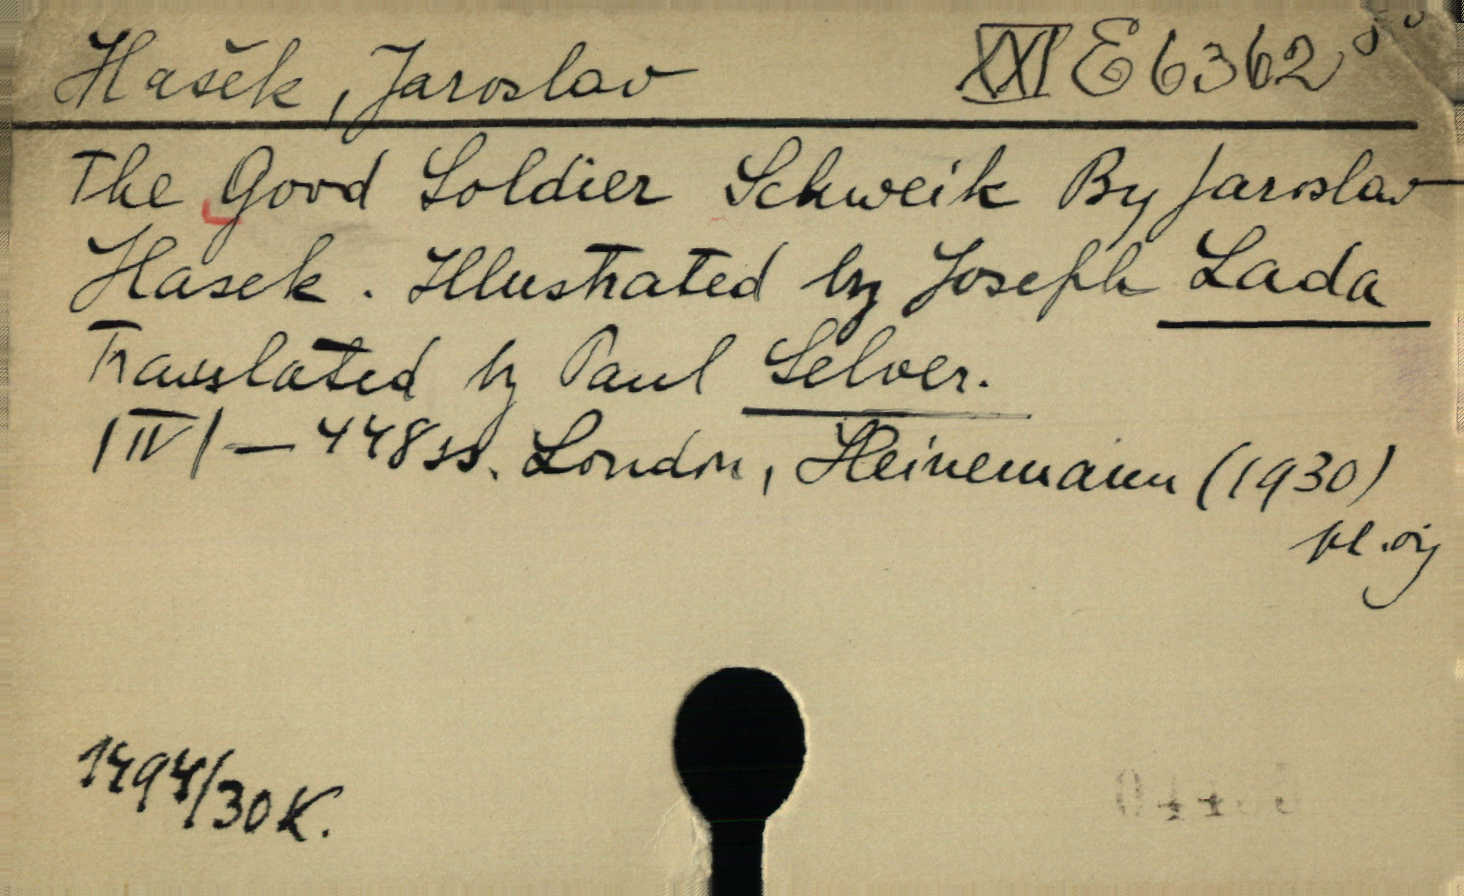 Hašek, Jaroslav XXI E 6362
The Good Soldier Schweik By Jaroslav
Hasek. Illustrated by Joseph Lada
Translated by Paul Selver.
|IV|—448 ss. London, Heinemann (1930)
1494/30 K.